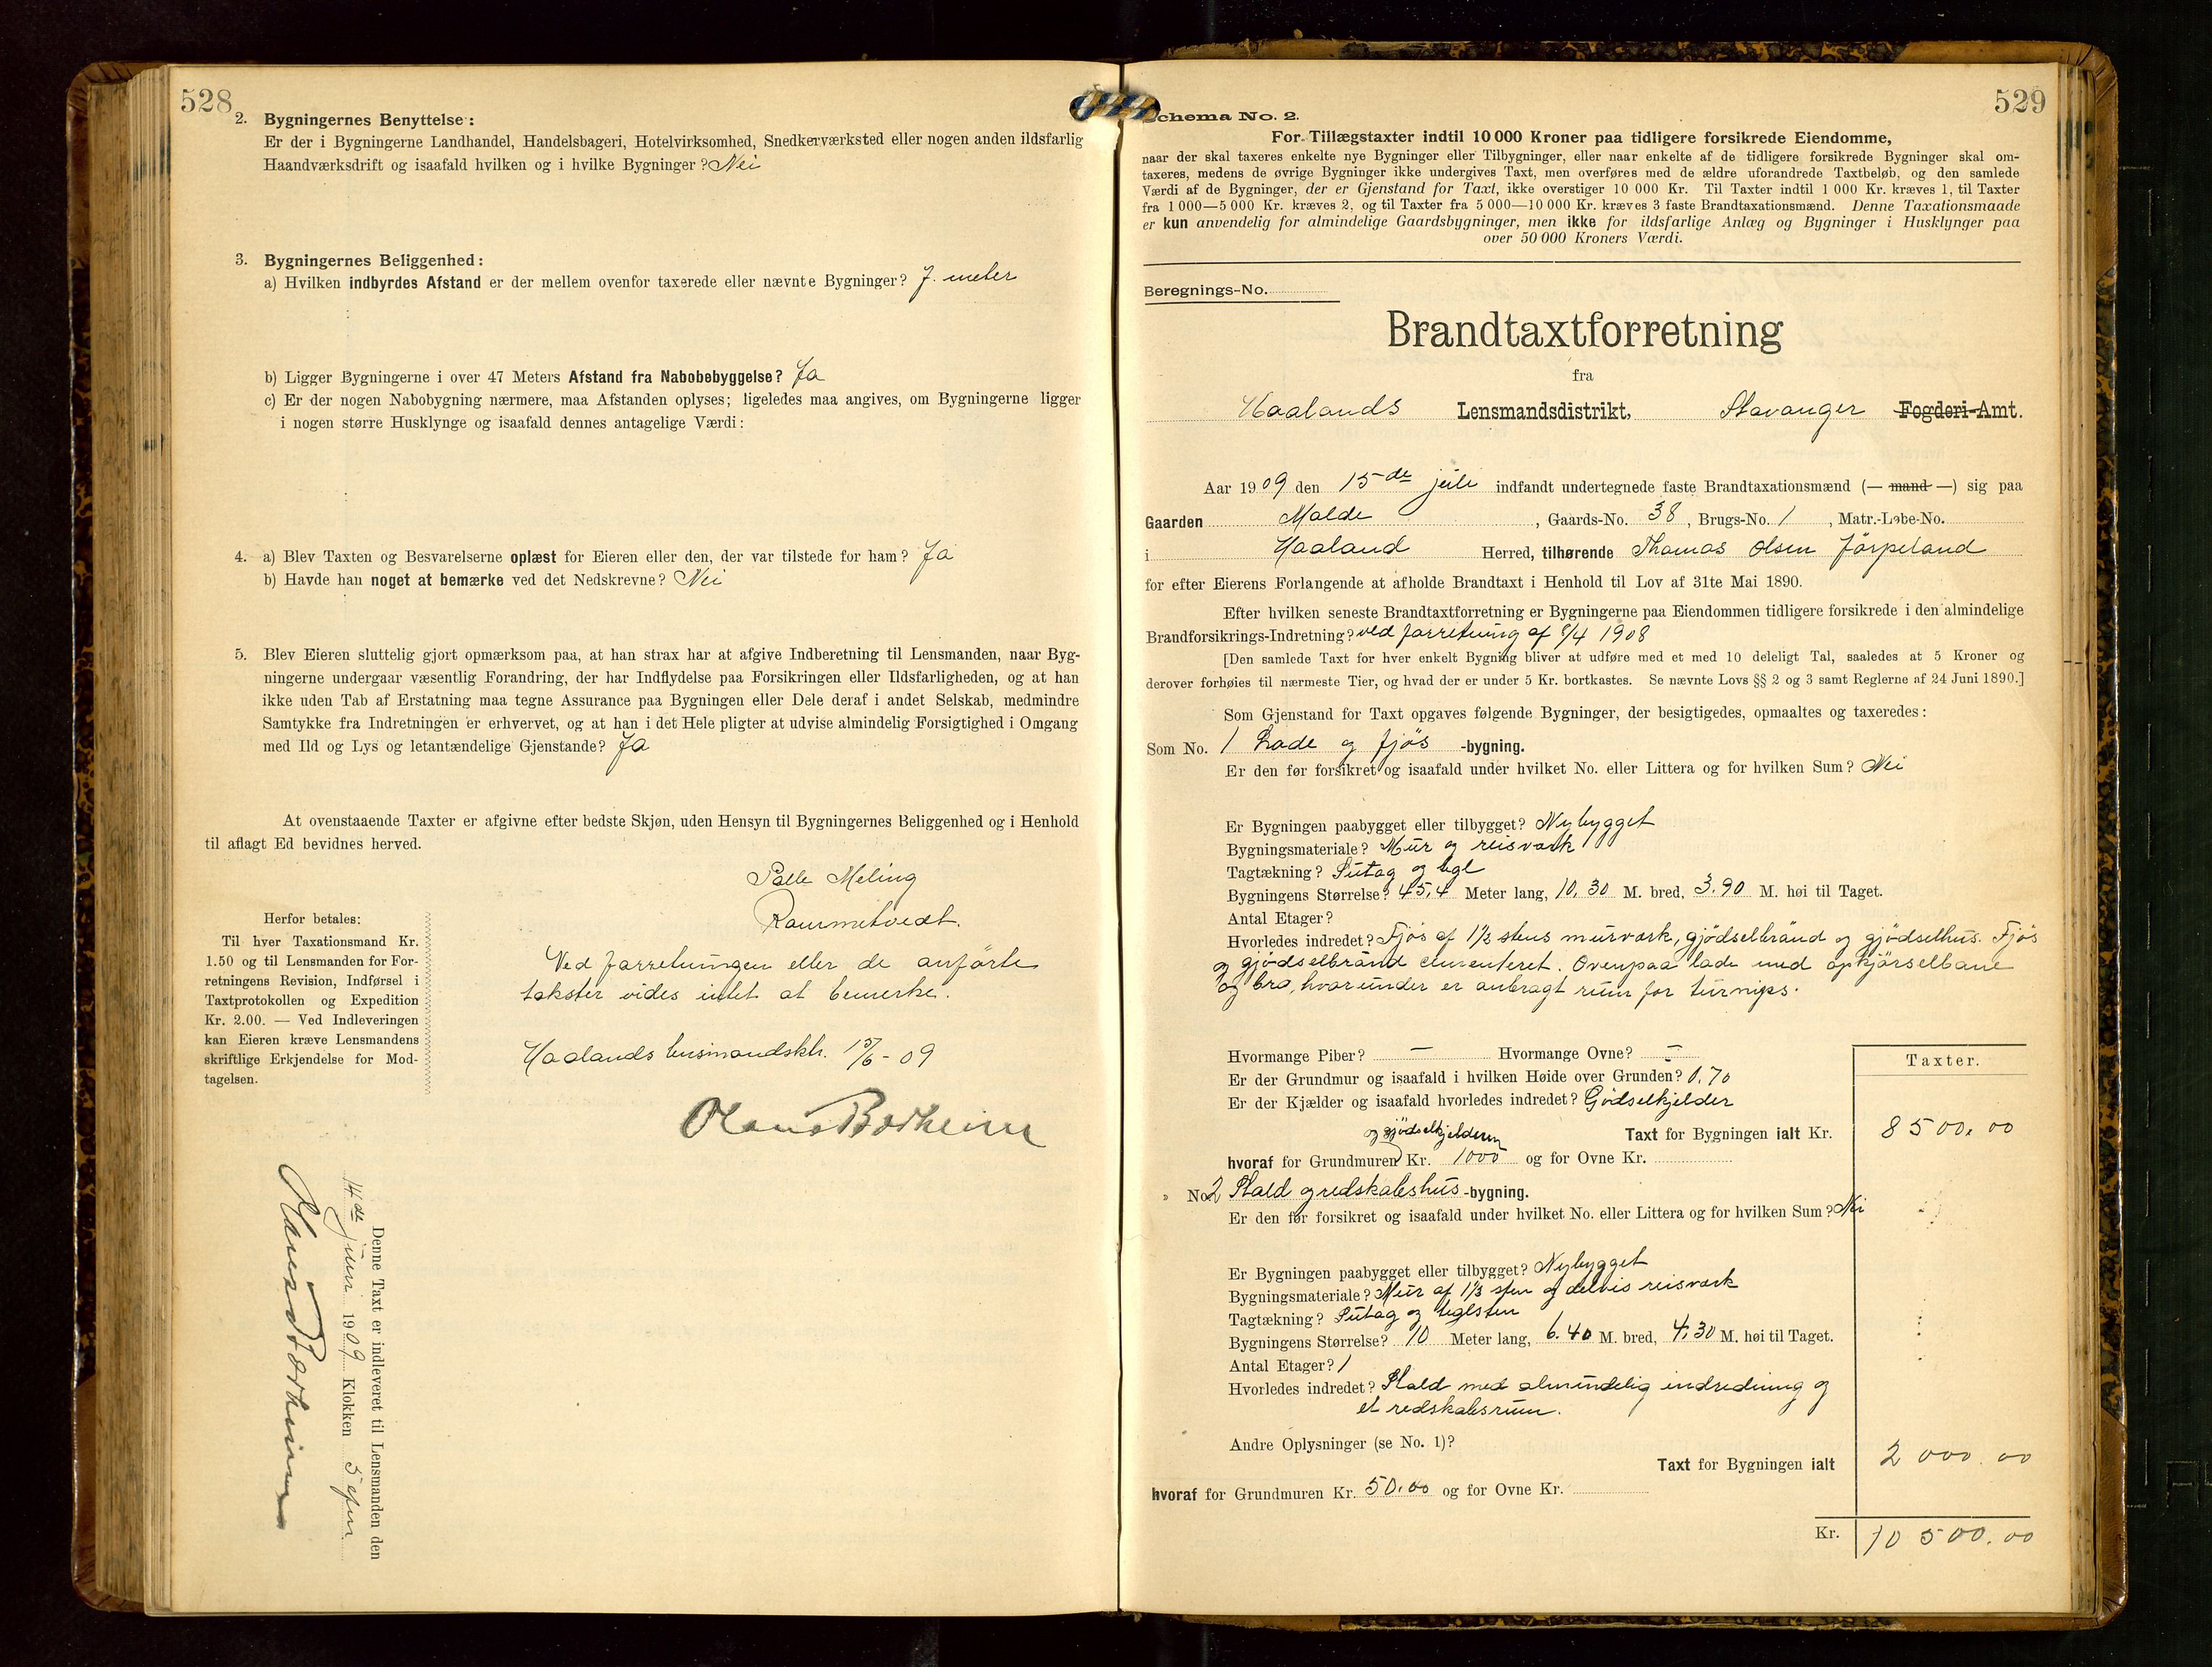 528
2. Bygningernes Benyttelse:
Er der i Bygningerne Landhandel, Handelsbageri, Hotelvirksomhed, Snedkerværksted eller nogen anden ildsfarlig
Haandværksdrift og isaafald hvilken og i hvilke Bygninger? Nei
3. Bygningernes Beliggenhed:
a) Hvilken indbyrdes Afstand er der mellem ovenfor taxerede eller nævnte Bygninger? 7. meter
b) Ligger Bygningerne i over 47 Meters Afstand fra Nabobebyggelse? Ja
c) Er der nogen Nabobygning nærmere, maa Afstanden oplyses; ligeledes maa angives, om Bygningerne ligger
i nogen større Husklynge og isaafald dennes antagelige Værdi:
4. a) Blev Taxten og Besvarelserne oplæst for Eieren eller den, der var tilstede for ham? Ja
b) Havde han noget at bemærke ved det Nedskrevne? Nei
5. Blev Eieren sluttelig gjort opmærksom paa, at han strax har at afgive Indberetning til Lensmanden, naar Byg-
ningerne undergaar væsentlig Forandring, der har Indflydelse paa Forsikringen eller Ildsfarligheden, og at han
ikke uden Tab af Erstatning maa tegne Assurance paa Bygningen eller Dele deraf i andet Selskab, medmindre
Samtykke fra Indretningen er erhvervet, og at han i det Hele pligter at udvise almindelig Forsigtighed i Omgang
med Ild og Lys og letantændelige Gjenstande? Ja
At ovenstaaende Taxter er afgivne efter bedste Skjøn, uden Hensyn til Bygningernes Beliggenhed og i Henhold
til aflagt Ed bevidnes herved.
Palle Meling
Herfor betales:
Til hver Taxationsmand Kr.
1.50 og til Lensmanden for For-
retningens Revision, Indførsel i
Taxtprotokollen og Expedition
Kr. 2.00. — Ved Indleveringen
kan Eieren kræve Lensmandens
skriftlige Erkjendelse for Mod-
tagelsen.
Ved forretningen eller de anførte
takster vides intet at bemerke.
Haalands 15/6-09
Denne Taxt er indleveret til Lensmanden den
14de juni 1909 Klokken 5 efm
529
Schema No. 2.
For Tillægstaxter indtil 10 000 Kroner paa tidligere forsikrede Eiendomme,
naar der skal taxeres enkelte nye Bygninger eller Tilbygninger, eller naar enkelte af de tidligere forsikrede Bygninger skal om-
taxeres, medens de øvrige Bygninger ikke undergives Taxt, men overføres med de ældre uforandrede Taxtbeløb, og den samlede
Værdi af de Bygninger, der er Gjenstand for Taxt, ikke overstiger 10 000 Kr. Til Taxter indtil 1 000 Kr. kræves 1, til Taxter
fra 1 000—5 000 Kr. kræves 2, og til Taxter fra 5 000—10 000 Kr. kræves 3 faste Brandtaxationsmænd. Denne Taxationsmaade
er kun anvendelig for almindelige Gaardsbygninger, men ikke for ildsfarlige Anlæg og Bygninger i Husklynger paa
over 50 000 Kroners Værdi.
Beregnings-No.
Brandtaxtforretning
fra
Haalands Lensmandsdistrikt, Stavanger Fogderi-Amt.
Aar 1909 den 15de juli indfandt undertegnede faste Brandtaxationsmænd (— mand —) sig paa
Gaarden Malde, Gaards-No. 38, Brugs-No. 1, Matr.-Løbe-No.
i Haaland Herred, tilhørende Thomas Olsen Jörpeland
for efter Eierens Forlangende at afholde Brandtaxt i Henhold til Lov af 31te Mai 1890.
Efter hvilken seneste Brandtaxtforretning er Bygningerne paa Eiendommen tidligere forsikrede i den almindelige
Brandforsikrings-Indretning? ved forretning af 8/4 1908
[Den samlede Taxt for hver enkelt Bygning bliver at udføre med et med 10 deleligt Tal, saaledes at 5 Kroner og
derover forhøies til nærmeste Tier, og hvad der er under 5 Kr. bortkastes. Se nævnte Lovs §§ 2 og 3 samt Reglerne af 24 Juni 1890.]
Som Gjenstand for Taxt opgaves følgende Bygninger, der besigtigedes, opmaaltes og taxeredes:
Som No. 1 Lade og fjös -bygning.
Er den før forsikret og isaafald under hvilket No. eller Littera og for hvilken Sum? Nei
Er Bygningen paabygget eller tilbygget? Nybygget
Bygningsmateriale? Mur og reisværk
Tagtækning? Sutag og tegl
Bygningens Størrelse? 45,4 Meter lang, 10,30 M. bred, 3,90 M. høi til Taget.
Antal Etager?
Hvorledes indredet? Fjös af 1½ stens murværk, gjödselbrönd og gjödselhus. Fjös
og gjödselbrönd cementeret. Ovenpaa lade med opkjörselbane
og bro, hvorunder er anbragt rum for turnips.
Hvormange Piber? — Hvormange Ovne? —
Er der Grundmur og isaafald i hvilken Høide over Grunden? 0,70
Er der Kjælder og isaafald hvorledes indredet? Gödselkjelder
Taxter.
Taxt for Bygningen ialt Kr. 8500.00
og gjödselkjelderen
hvoraf for Grundmuren Kr. 1000 og for Ovne Kr.
" No. 2 Stald og redskabshus -bygning.
Er den før forsikret og isaafald under hvilket No. eller Littera og for hvilken Sum? Nei
Er Bygningen paabygget eller tilbygget? Nybygget
Bygningsmateriale? Mur af 1½ sten og delvis reisværk
Tagtækning? Sutag og teglsten
Bygningens Størrelse? 10 Meter lang, 6.40 M. bred, 4,30 M. høi til Taget.
Antal Etager? 1
Hvorledes indredet? Stald med almindelig indredning og
et redskabsrum.
Andre Oplysninger (se No. 1)?
Taxt for Bygningen ialt 2000.00
hvoraf for Grundmuren Kr. 50.00 og for Ovne Kr.
Kr. 10500.00